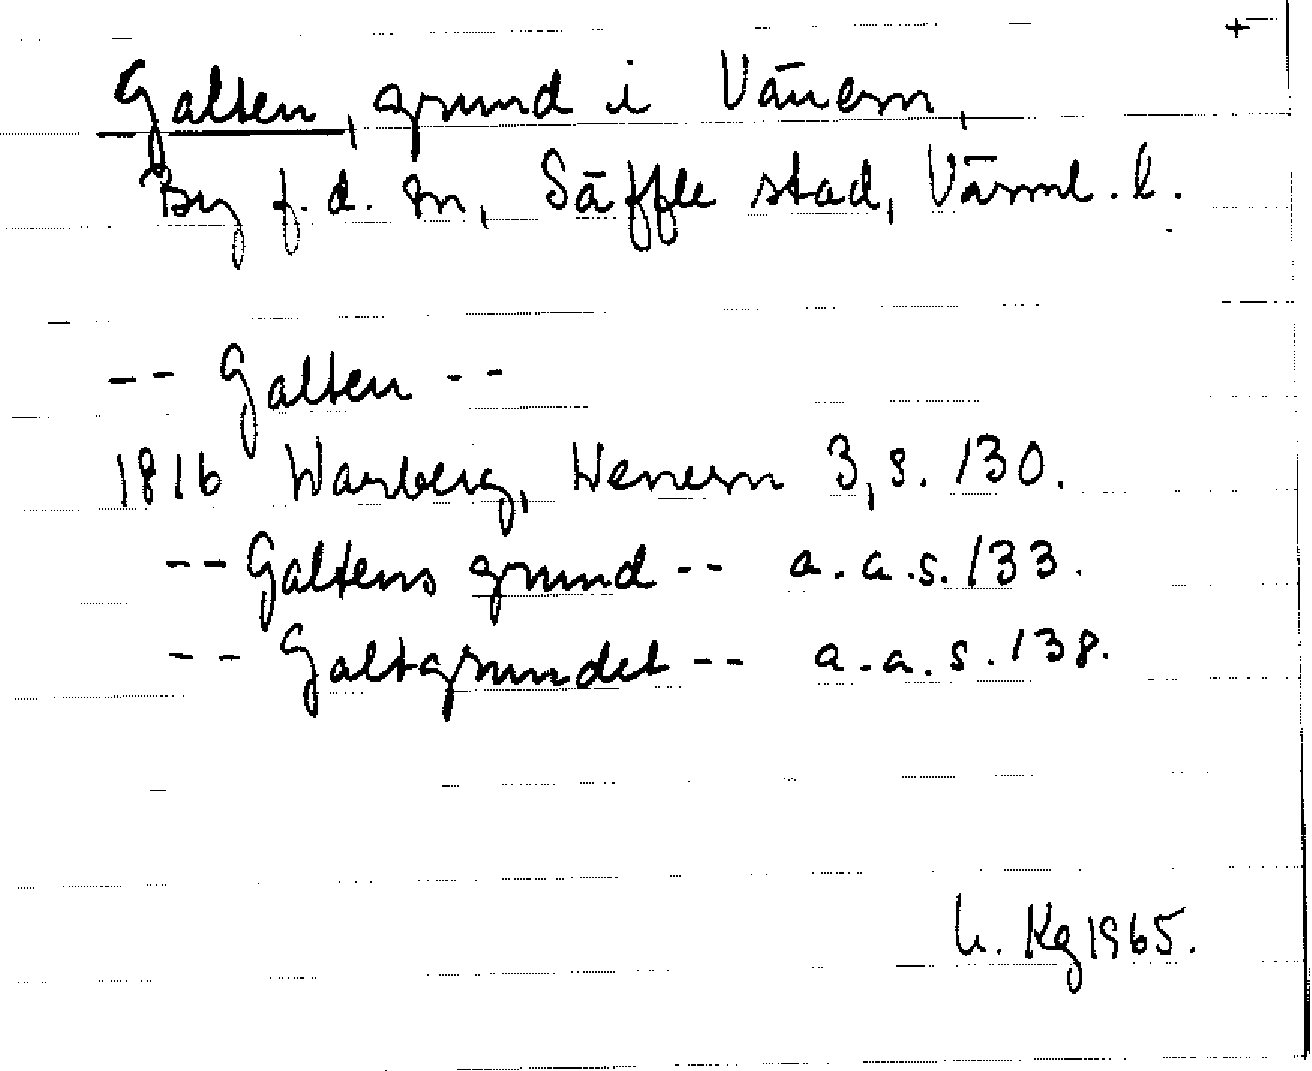 +
Galten, grund i Vänern,
By f.d. sn, Säffle stad, Värml. l.
-- Galten --
1816 Warberg, Wenern 3, s. 130.
-- Galtens grund -- a.a.s. 133.
-- Galtgrundet -- a.a.s. 138.
h. Kg 1965.